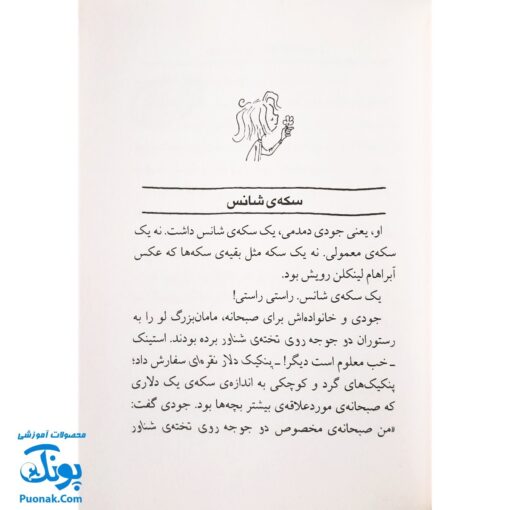 سکه‌ی شانس
او، یعنی جودی دمدمی، یک سکه‌ی شانس داشت. نه یک
سکه‌ی معمولی. نه یک سکه مثل بقیه‌ی سکه‌ها که عکس
آبراهام لینکلن رویش بود.
یک سکه‌ی شانس. راستی راستی!
جودی و خانواده‌اش برای صبحانه، مامان‌بزرگ لو را به
رستوران دو جوجه روی تخته‌ی شناور برده بودند. استینک
ـ خب معلوم است دیگر! ـ پنکیک دلار نقره‌ای سفارش داد؛
پنکیک‌های گرد و کوچکی به اندازه‌ی سکه‌ی یک دلاری
که صبحانه‌ی موردعلاقه‌ی بیشتر بچه‌ها بود. جودی گفت:
«من صبحانه‌ی مخصوص دو جوجه روی تخته‌ی شناور
محصولات آموزشی
پونک
Puonak.Com